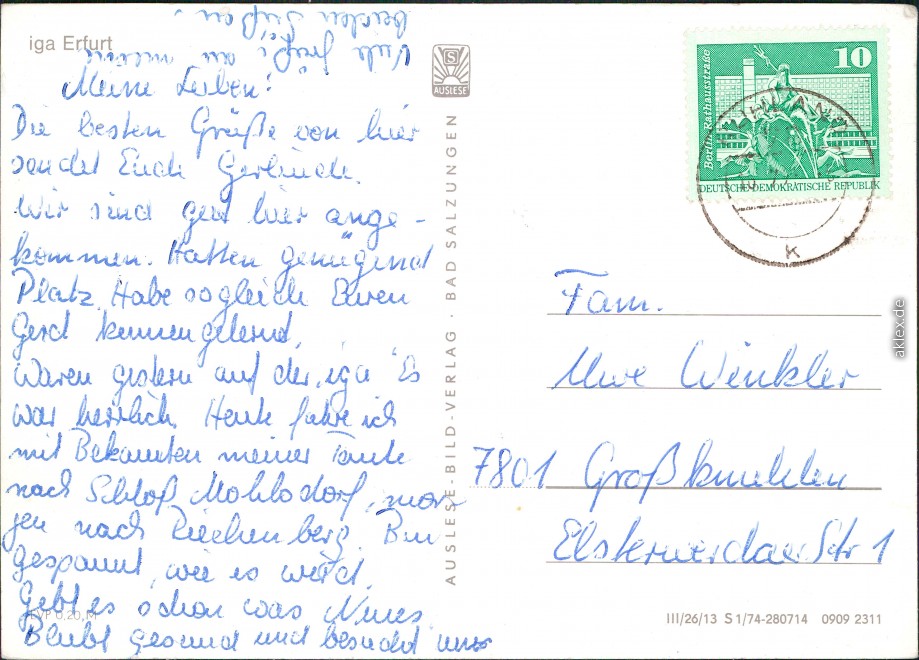 iga Erfurt
Viele Grüße an meine
beiden Süßen.
Meine Lieben!
Die besten Grüße von hier
sendet Euch Gerlinde.
Wir sind gut hier ange-
kommen. Hatten genügend
Platz. Habe sogleich Euren
Gerd kennengelernt.
Waren gestern auf der "iga" Es
war herrlich. Heute fahre ich
mit Bekannten meiner Tante
nach Schloß Mohlsdorf, mor
gen nach Reichenberg. Bin
gespannt, wie es wird.
Gebt es schon was Neues
EVP 0,20 M
Bleibt gesund und besucht uns
S
AUSLESE
AUSLESE-BILD-VERLAG · BAD SALZUNGEN
Berlin, Rathausstraße
10
DEUTSCHE DEMOKRATISCHE REPUBLIK
k
Fam.
Uwe Winkler
7801 Großkmehlen
Elsterwerdaer Str 1
III/26/13 S 1/74-280714 0909 2311
aklex.de